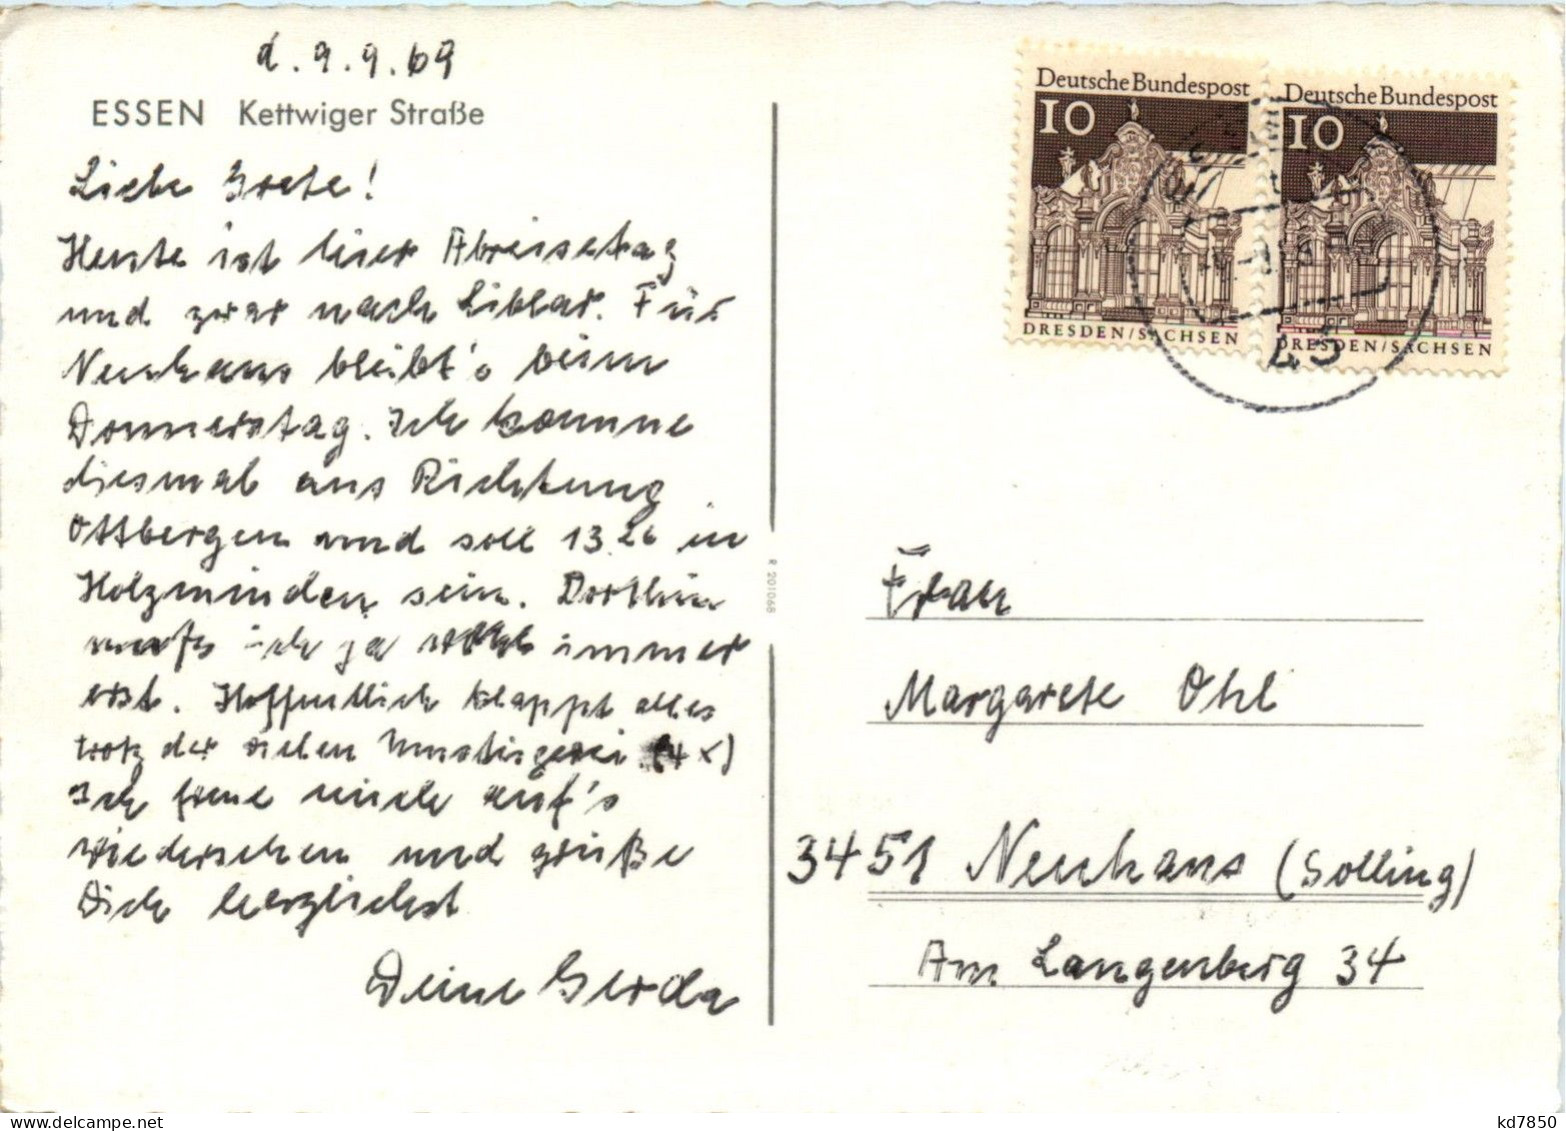 d. 9.9.69
ESSEN Kettwiger Straße
Liebe Grete!
Heute ist hier Abreisetag
und zwar nach Liblar. Für
Neuhaus bleibt's beim
Donnerstag. Ich komme
diesmal aus Richtung
Ottbergen und soll 13.26 in
Holzminden sein. Dorthin
muß ich ja immer
erst. Hoffentlich klappt alles
trotz der vielen Umsteigerei. (4x)
Ich freue mich auf's
Wiedersehen und grüße
Dich herzlichst
Deine Gerda
R 201068
Deutsche Bundespost
10
DRESDEN/SACHSEN
Deutsche Bundespost
10
DRESDEN/SACHSEN
Frau
Margarete Ohl
3451 Neuhaus (Solling)
Am Langenberg 34
kd7850